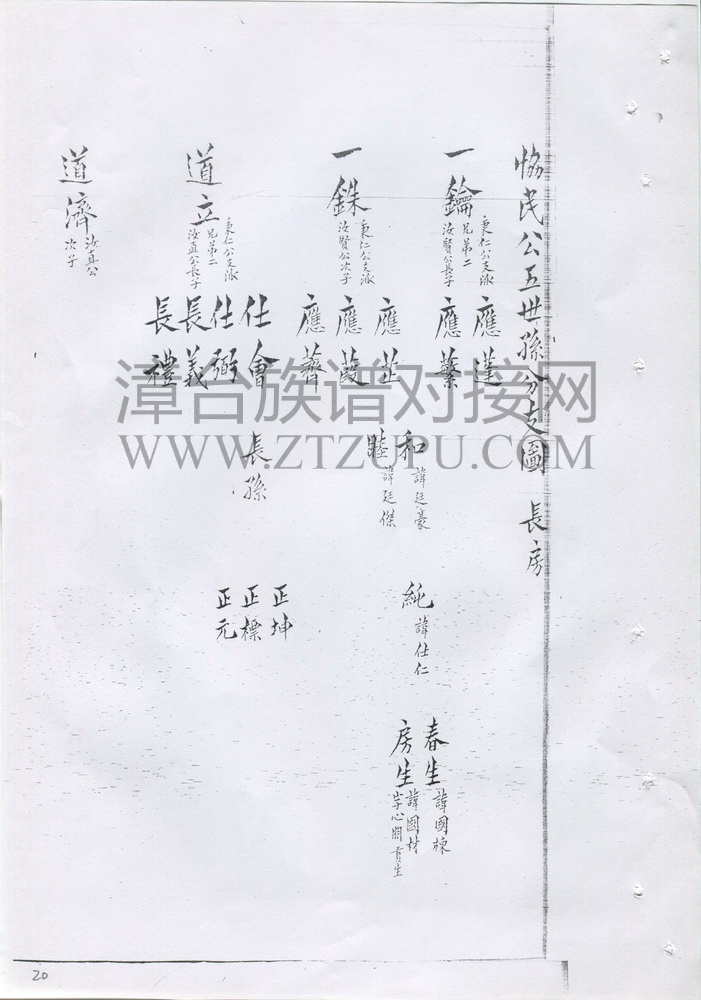 恊民公五世孫分支圖 長房
一鑰
秉仁公支派
兄弟二
汝賢公長子
應蓮
應蘩
一銖
秉仁公支派
汝賢公次子
應芷
應葭
應薺
和 諱廷豪
睦 諱廷傑
純 諱仕仁
春生 諱國棟
房生 諱國材
字心閒貢生
道立
秉仁公支派
兄弟二
汝直公長子
仕會
仕弼
長義
長禮
長孫
正坤
正標
正元
道濟
汝直公
次子
漳台族谱对接网
WWW.ZTZUPU.COM
20